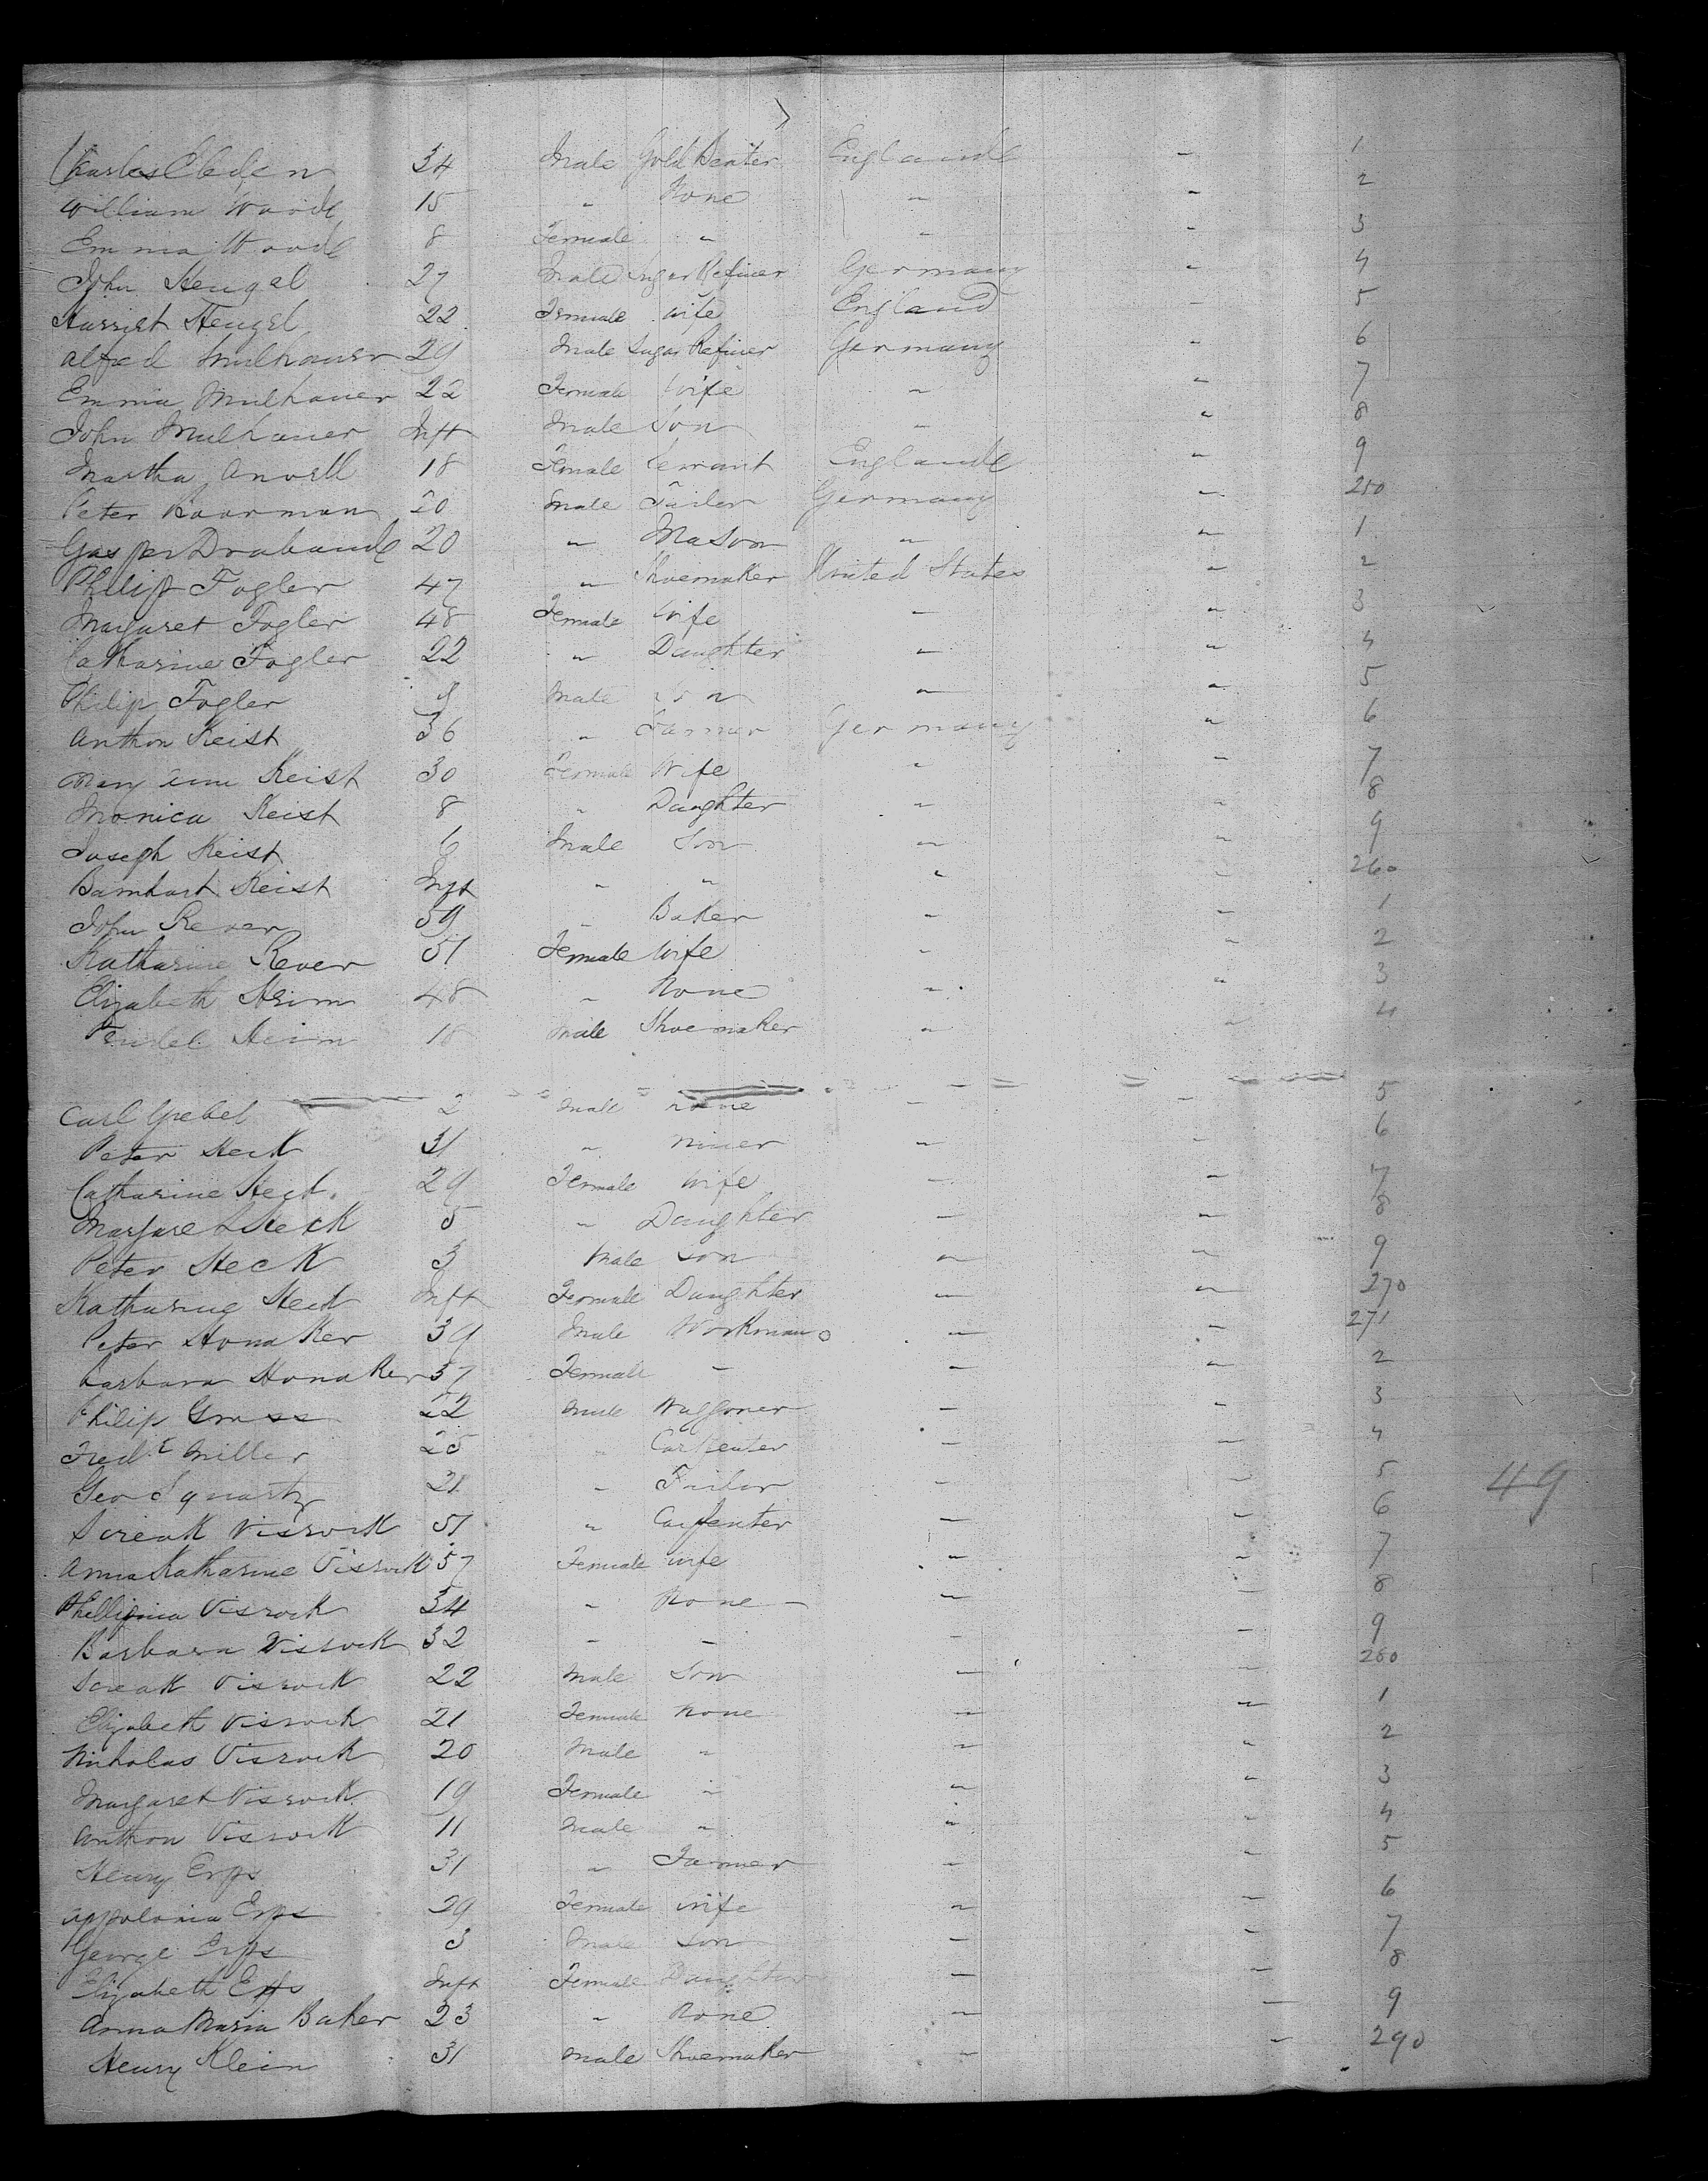 Charles Cleden 34 Male Gold Beater England - 1
William Woode 15 " None " " 2
Emma Woode 8 Female " " " 3
John Hengel 27 Male Sugar Refiner Germany " 4
Harriet Hengel 22 Female Wife England - 5
Alfed Mulhauser 29 Male Sugar Refiner Germany " 6
Emma Mulhauer 22 Female Wife " " 7
John Mulhauer Inft Male Son " " 8
Martha 18 Female Servant England " 9
Peter Boorman 20 Male Tailor Germany " 250
Gasper Drabande 20 " Mason " " 1
Philip Fogler 47 " Shoemaker United States " 2
Margaret Fogler 48 Female Wife " " 3
Catharine Fogler 22 " Daughter " " 4
Philip Fogler Male Son " " 5
Anthon Keist 36 " Farmer Germany " 6
Mary Ann Keist 30 Female Wife " " 7
Monica Keist 8 " Daughter " " 8
Joseph Keist 6 Male Son " " 9
Barnhart Keist Inft " " " " 260
John Rever 59 " Baker " " 1
Katharine Rever 51 Female Wife " " 2
Elizabeth Heim 48 " None " " 3
Heim 18 Male Shoemaker " " 4
Carl Grebel 2 Male none " " 5
Peter Heck 31 " Miner " " 6
Catharine Heck 29 Female Wife " " 7
Margaret Heck 5 " Daughter " " 8
Peter Heck 3 Male Son " " 9
Katharine Heck Inft Female Daughter " " 270
Peter Honaker 39 Male Workman " " 271
Barbara Honaker 37 Female - " " 2
Philip Gross 22 Male Waggoner " " 3
Fredk Miller 25 " Carpenter " " 4
Geo Squartz 21 " Tailor " " 5
49
Visrock 51 " Carpenter " " 6
Anna Katharine Visrock 57 Female wife " " 7
Visrock 34 " None " " 8
Barbara Visrock 32 " " " " 9
Visrock 22 Male Son " " 280
Elizabeth Visrock 21 Female None " " 1
Nicholas Visrock 20 Male " " " 2
Margaret Visrock 19 Female " " " 3
Anthon Visrock 11 Male " " " 4
Henry Erps 31 " Farmer " " 5
Appolonia Erps 29 Female wife " " 6
George Erps 3 Male Son " " 7
Elizabeth Erps Inft Female Daughter " " 8
Anna Maria Baker 23 " None " " 9
Henry Klein 31 Male Shoemaker " " 290